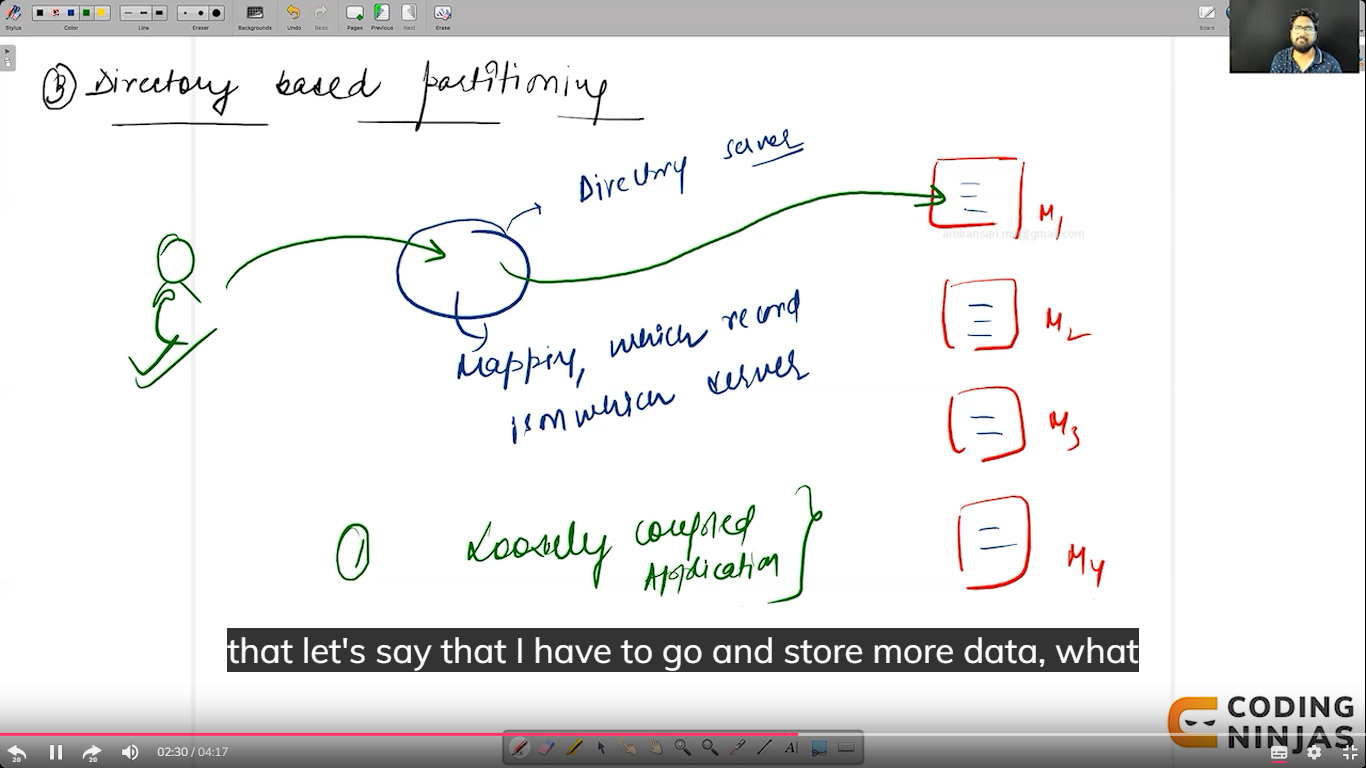 Stylus
Color
Line
Eraser
Backgrounds
Undo
Redo
Pages
Previous
Next
Erase
Board
3 Directory based partitioning
Directory server
M1
M2
Mapping, which record
is on which server
M3
1 Loosely coupled
Application
M4
that let's say that I have to go and store more data, what
CODING
NINJAS
20
20
02:30 / 04:17